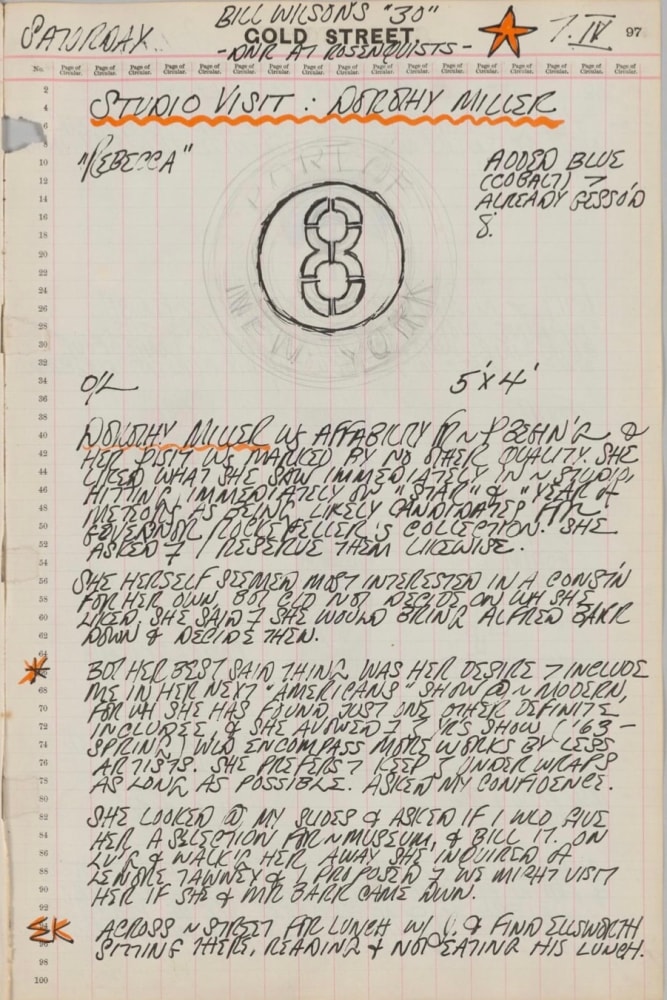 SATURDAY.
BILL WILSON'S "30"
GOLD STREET.
- DNR AT ROSENQUISTS -
7. IV
97
No. Page of Circular. Page of Circular. Page of Circular. Page of Circular. Page of Circular. Page of Circular. Page of Circular. Page of Circular. Page of Circular. Page of Circular. Page of Circular. Page of Circular. Page of Circular. Page of Circular. Page of Circular. Page of Circular. Page of Circular. Page of Circular.
STUDIO VISIT : DOROTHY MILLER
"REBECCA"
ADDED BLUE
(COBALT) 7
ALREADY GESSO'D
8.
PORT OF
8
NEW YORK
O/L
5' X 4'
DOROTHY MILLER WS AFFABILITY FR N BEGIN'G &
HER VISIT WS MARKED BY NO OTHER QUALITY. SHE
LIKED WHAT SHE SAW IMMEDIATELY IN N STUDIO,
HITTING IMMEDIATELY ON "STAR" & "YEAR OF
METEORS AS BEING LIKELY CANDIDATES FOR
GOVERNOR ROCKEFELLER'S COLLECTION. SHE
ASKED 7 I RESERVE THEM LIKEWISE.
SHE HERSELF SEEMED MOST INTERESTED IN A CONST'N
FOR HER OWN, BUT DID NOT DECIDE ON WH SHE
LIKED. SHE SAID 7 SHE WOULD BRING ALFRED BARR
DOWN & DECIDE THEN.
BUT HER BEST SAID THING WAS HER DESIRE 7 INCLUDE
ME IN HER NEXT "AMERICANS" SHOW @ N MODERN,
FOR WH SHE HAS FOUND JUST ONE OTHER DEFINITE
INCLUDEE, & SHE AVOWED 7 YRS SHOW ('63 –
SPRING) WLD ENCOMPASS MORE WORKS BY LESS
ARTISTS. SHE PREFERS 7 KEEP 7 UNDER WRAPS
AS LONG AS POSSIBLE. ASKED MY CONFIDENCE.
SHE LOOKED @ MY SLIDES & ASKED IF I WLD GIVE
HER A SELECTION FOR N MUSEUM, & BILL IT. ON
LV'G & WALK'G HER AWAY SHE INQUIRED OF
LENORE TAWNEY & I PROPOSED 7 WE MIGHT VISIT
HER IF SHE & MR BARR CAME DWN.
EK
ACROSS N STREET FOR LUNCH W/ & FIND ELLSWORTH
SITTING THERE, READING & NOT EATING HIS LUNCH.
2
4
6
8
10
12
14
16
18
20
22
24
26
28
30
32
34
36
38
40
42
44
46
48
50
52
54
56
58
60
62
64
68
70
72
74
76
78
80
82
84
86
88
90
92
96
98
100